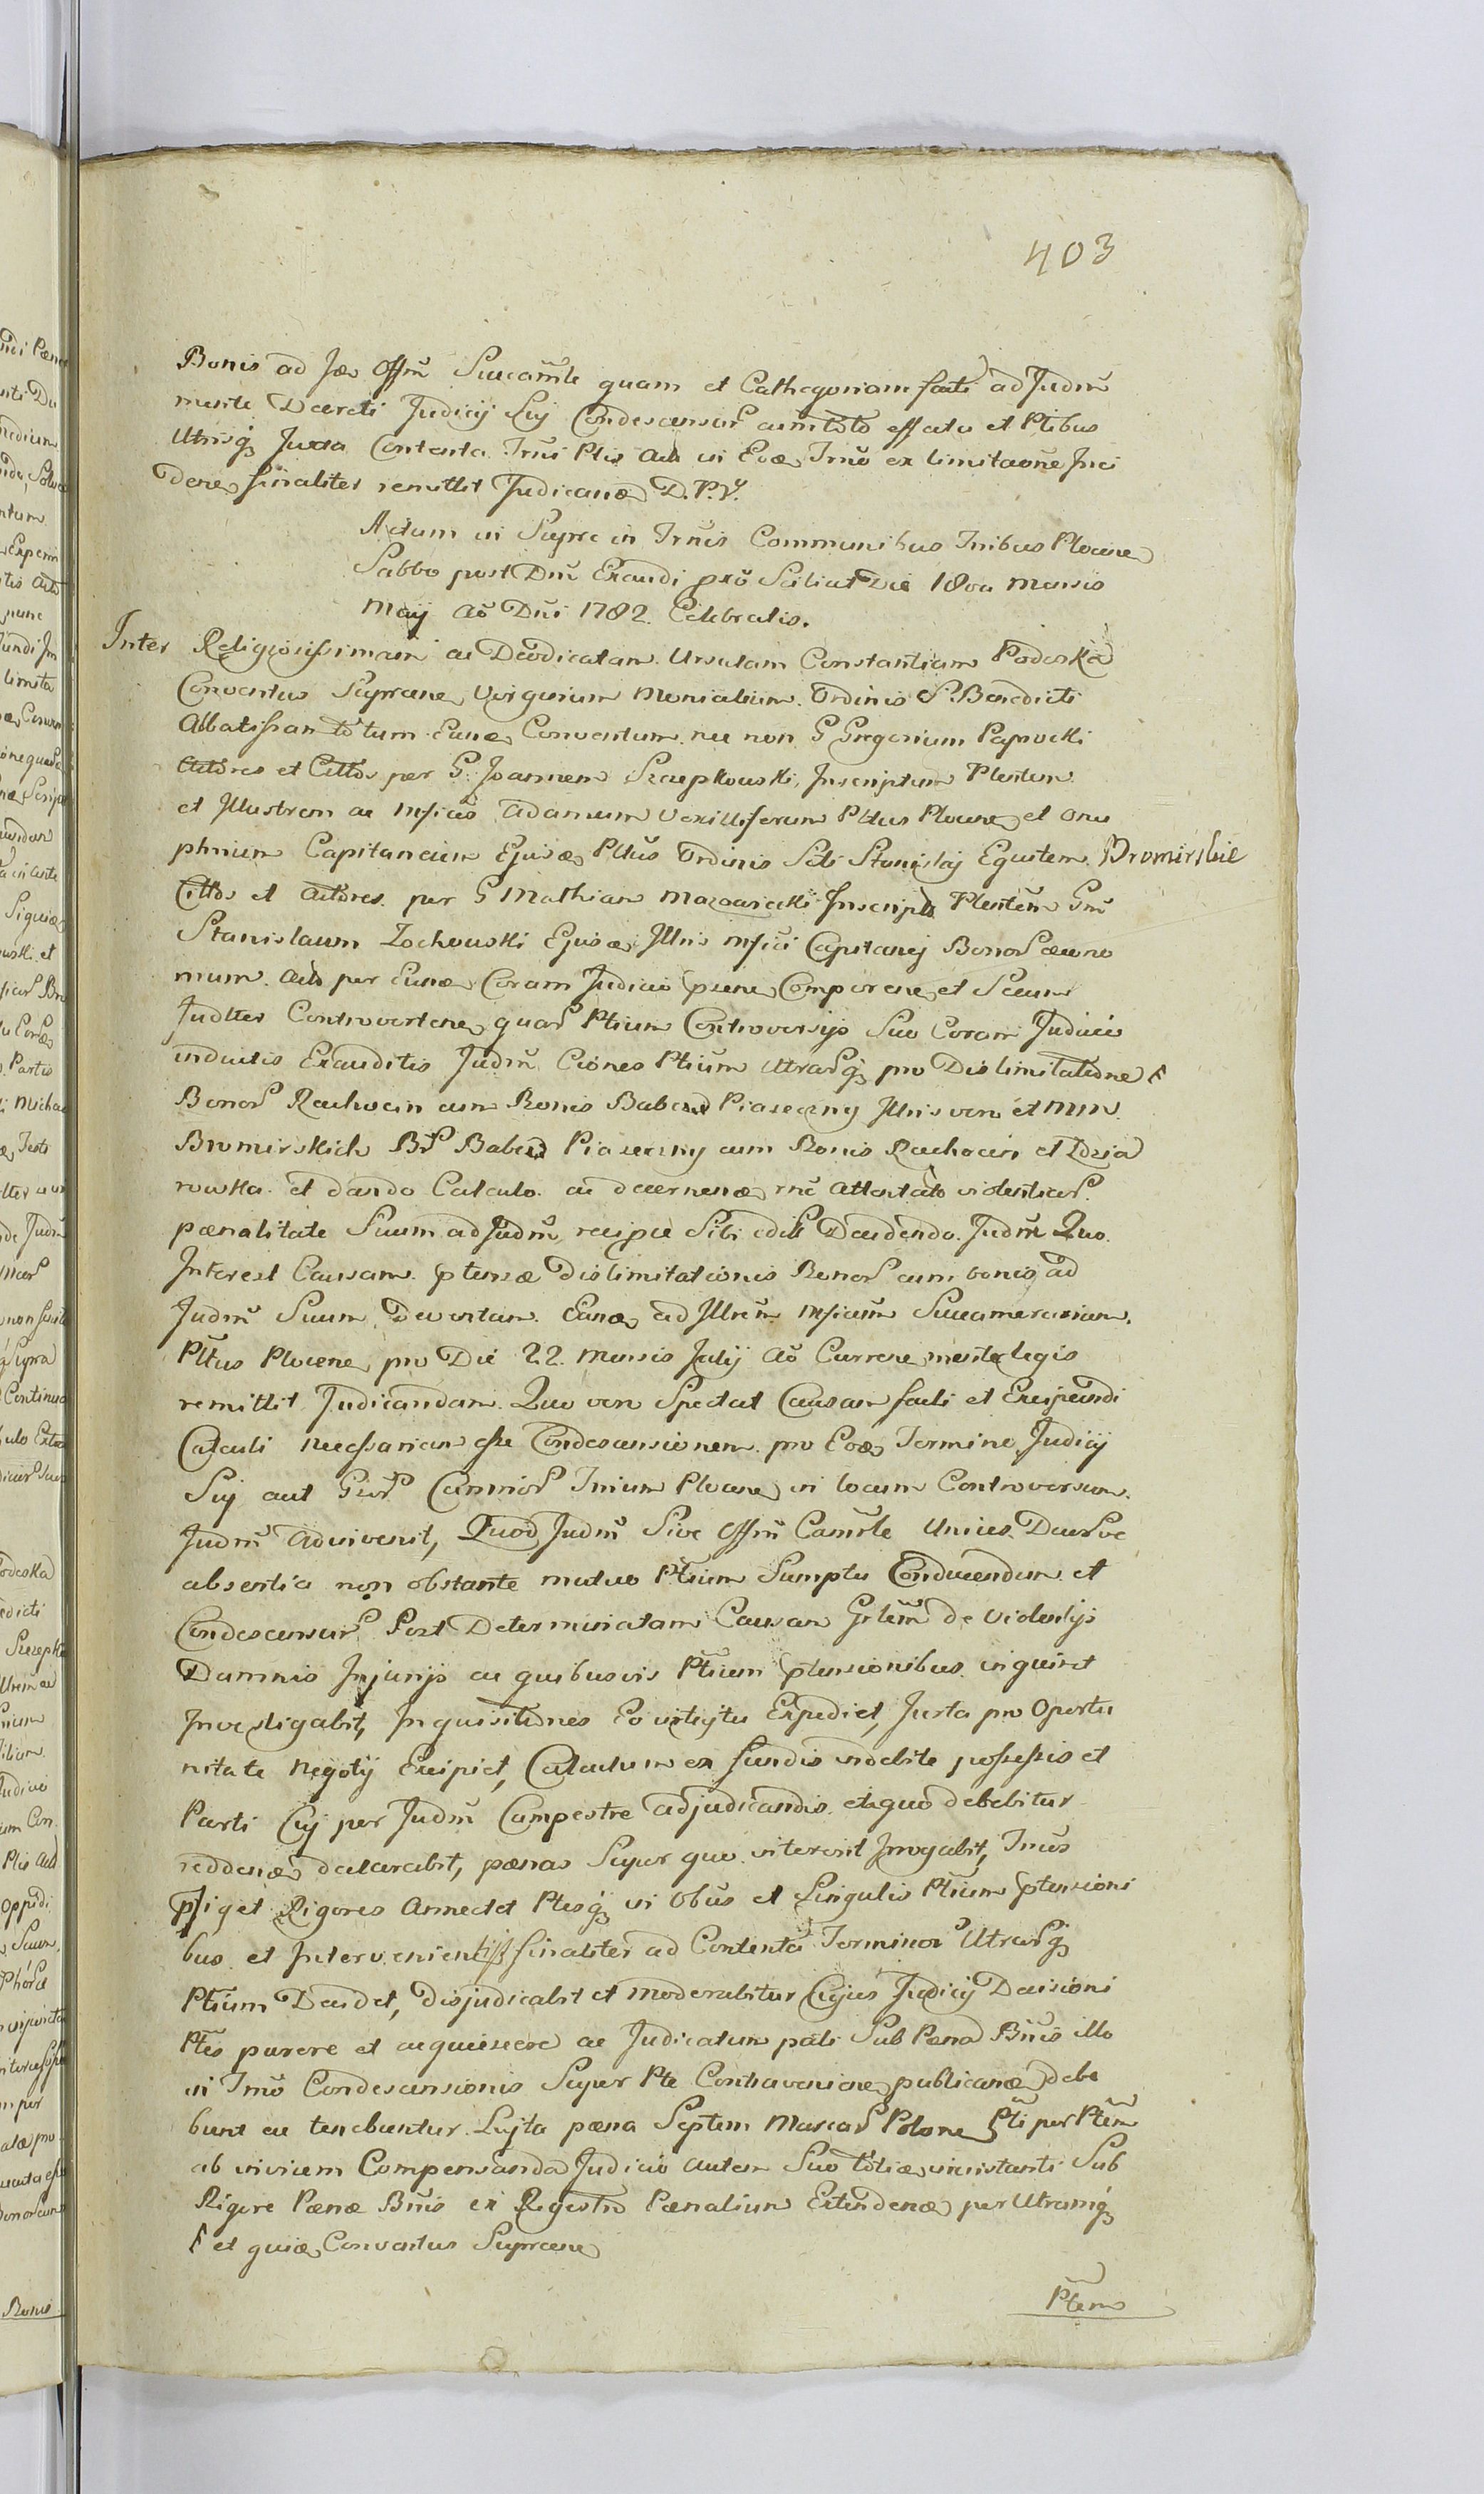 403
Bonis ad Jæ Offm̃ Succam̃le quam et Cathegoriam facti ad Judm̃
mente Decreti Judicij Suj Condescensur cum toto effectu et Ptibus
Utrisq; Juxta Contenta Trñi Ptis Act in Eoæ Trño ex limitaone Inci
dene finaliter remittit Judicanæ D.P.V.
Actum ut Supra in Trñis Communibus Tribus Plocene
Sabbo post Dm̃ Exaudi pro Scilicet Die 18va Mensis
Maij Aõ Dñi 1782. Celebratis.
Inter Religiosissimam ac Deodicatam Ursulam Constantiam Podoska
Conventus Sieprcene Virginum Monialium Ordinis S. Benedicti
Abbatissam totum Eunæ Conventum nec non G Gregorium Paprocki
Actores et Cittos per G. Joannem Szczepkowski Inscriptum Plentem
et Illustrem ac Mficos Adamum Vexilliferum Pltus Plocene et Onu
phrium Capitaneum Ejusæ Pltus Ordinis Scti Stanislaj Equitem Bromirskie
Cittos et Actores per G Mathiam Mazowiecki Inscript Plentem Gm̃
Stanislaum Zochowski Ejusæ Illris Mfici Capitanej Bonor œcono
mum Act per Eunæ Coram Judicio psene Comparene et Secum
Judlter Controvertene quar Ptium Controversijs Suo Coram Judicio
inductis Exauditis Judm̃ Ciones Ptium Utrarq; pro Dislimitatione F
Bonor Rachocin cum Bonis Babca Piaseczny Illris vero et MM.
Bromirskich Br Babca Piaseczny cum Bonis Rachocin et Dzia
rowska et dando Calculo ac decernenæ rnẽ Attentato violentiar
pænalitate Suum ad Judm̃ recipit Sibi edit Decidendo Judm̃ Quo
Interest Causam ptensæ Dislimitationis Bonor cum bonis ad
Judm̃ Suum Devolutam Eanæ ad Illrem Mficum Succamerarium
Pltus Plocene pro Die 22. Mensis Julij Aõ Currene mente legis
remittit Judicandam. Quo vero Spectat Causam facti et Excipiendi
Calculi necessariam esse Condescensionem pro Eoæ Termino Judicij
Suj aut Gior Camrior Trium Plocene in locum Controversum
Judm̃ adinvenit, Quod Judm̃ Sive Offm̃ Cam̃rle Unius Duorve
absentia non obstante mutuo Ptium Sumptu Conducendum et
Condescensur Post Determinatam Causam Grlem de violentijs
Damnis Injurijs ac quibusvis Ptium ptensionibus inquiret
Investigabit, Inquisitiones Eo intuitu Expediet, Jurta pro Oportu
nitate Negotij Excipiet, Calculum ex fundis indebite possessis et
Parti Cuj per Judm̃ Campestre adjudicandis et quo debebitur
reddenæ declarabit, pœnas Super quo intererit Irrogabit, Trnos
pfiget Rigores Annectet Ptesq; in Obus et Singulis Ptium ptensioni
bus et Intervenient finaliter ad Contenta Terminor Utrarq;
Ptium Decidet, Disjudicabit et Moderabitur Cujus Judicij Decisioni
Ptes parere et acquiescere ac Judicatum pati Sub Pœna Bñis illo
in Trmo Condescensionis Super Pte Contravenicne publicanæ debe
bunt ac tenebuntur. Lujta pœna Septem Marcar Polone Pti per Ptem
ab invicem Compensanda Judicio autem Suo totiæ instanti Sub
Rigore Pœnæ Bñis ex Regestro Pœnalium Extendenæ per Utramq;
F et quiæ Conventus Sieprcene
Ptem